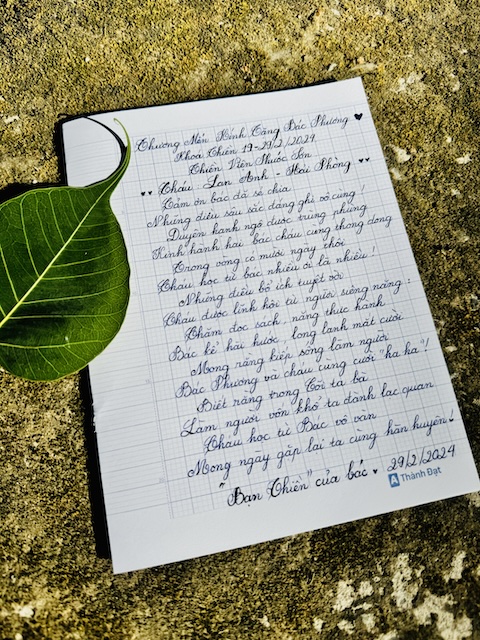 Thương Mến Kính Tặng Bác Phương ♥
Khoá Thiền 19-29/2/2024
Thiền Viện Phước Sơn
♥♥ Cháu Lan Anh - Hải Phòng ♥♥
Cảm ơn bác đã sẻ chia
Những điều sâu sắc đáng ghi vô cùng!
Duyên lành ngộ được trùng phùng
Kinh hành hai bác cháu cùng thong dong
Trong vòng có mười ngày thôi
Cháu học từ bác nhiều ơi là nhiều!
Những điều bổ ích tuyệt vời
Cháu được lĩnh hội từ người siêng năng:
Chăm đọc sách, năng thực hành
Bác kể hài hước, long lanh mắt cười
Mong rằng kiếp sống làm người
Bác Phương và cháu cùng cười "ha ha"!
Biết rằng trong Cõi ta bà
Làm người vốn khổ ta đành lạc quan
Cháu học từ Bác vô vàn
Mong ngày gặp lại ta cùng hàn huyên!
"Bạn Thiền" của bác ♥ 29/2/2024
Thành Đạt